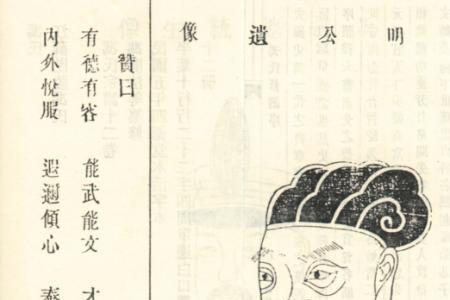 明公遺像
贊曰
有德有容 能武能文 才
內外悅服 遐邇傾心